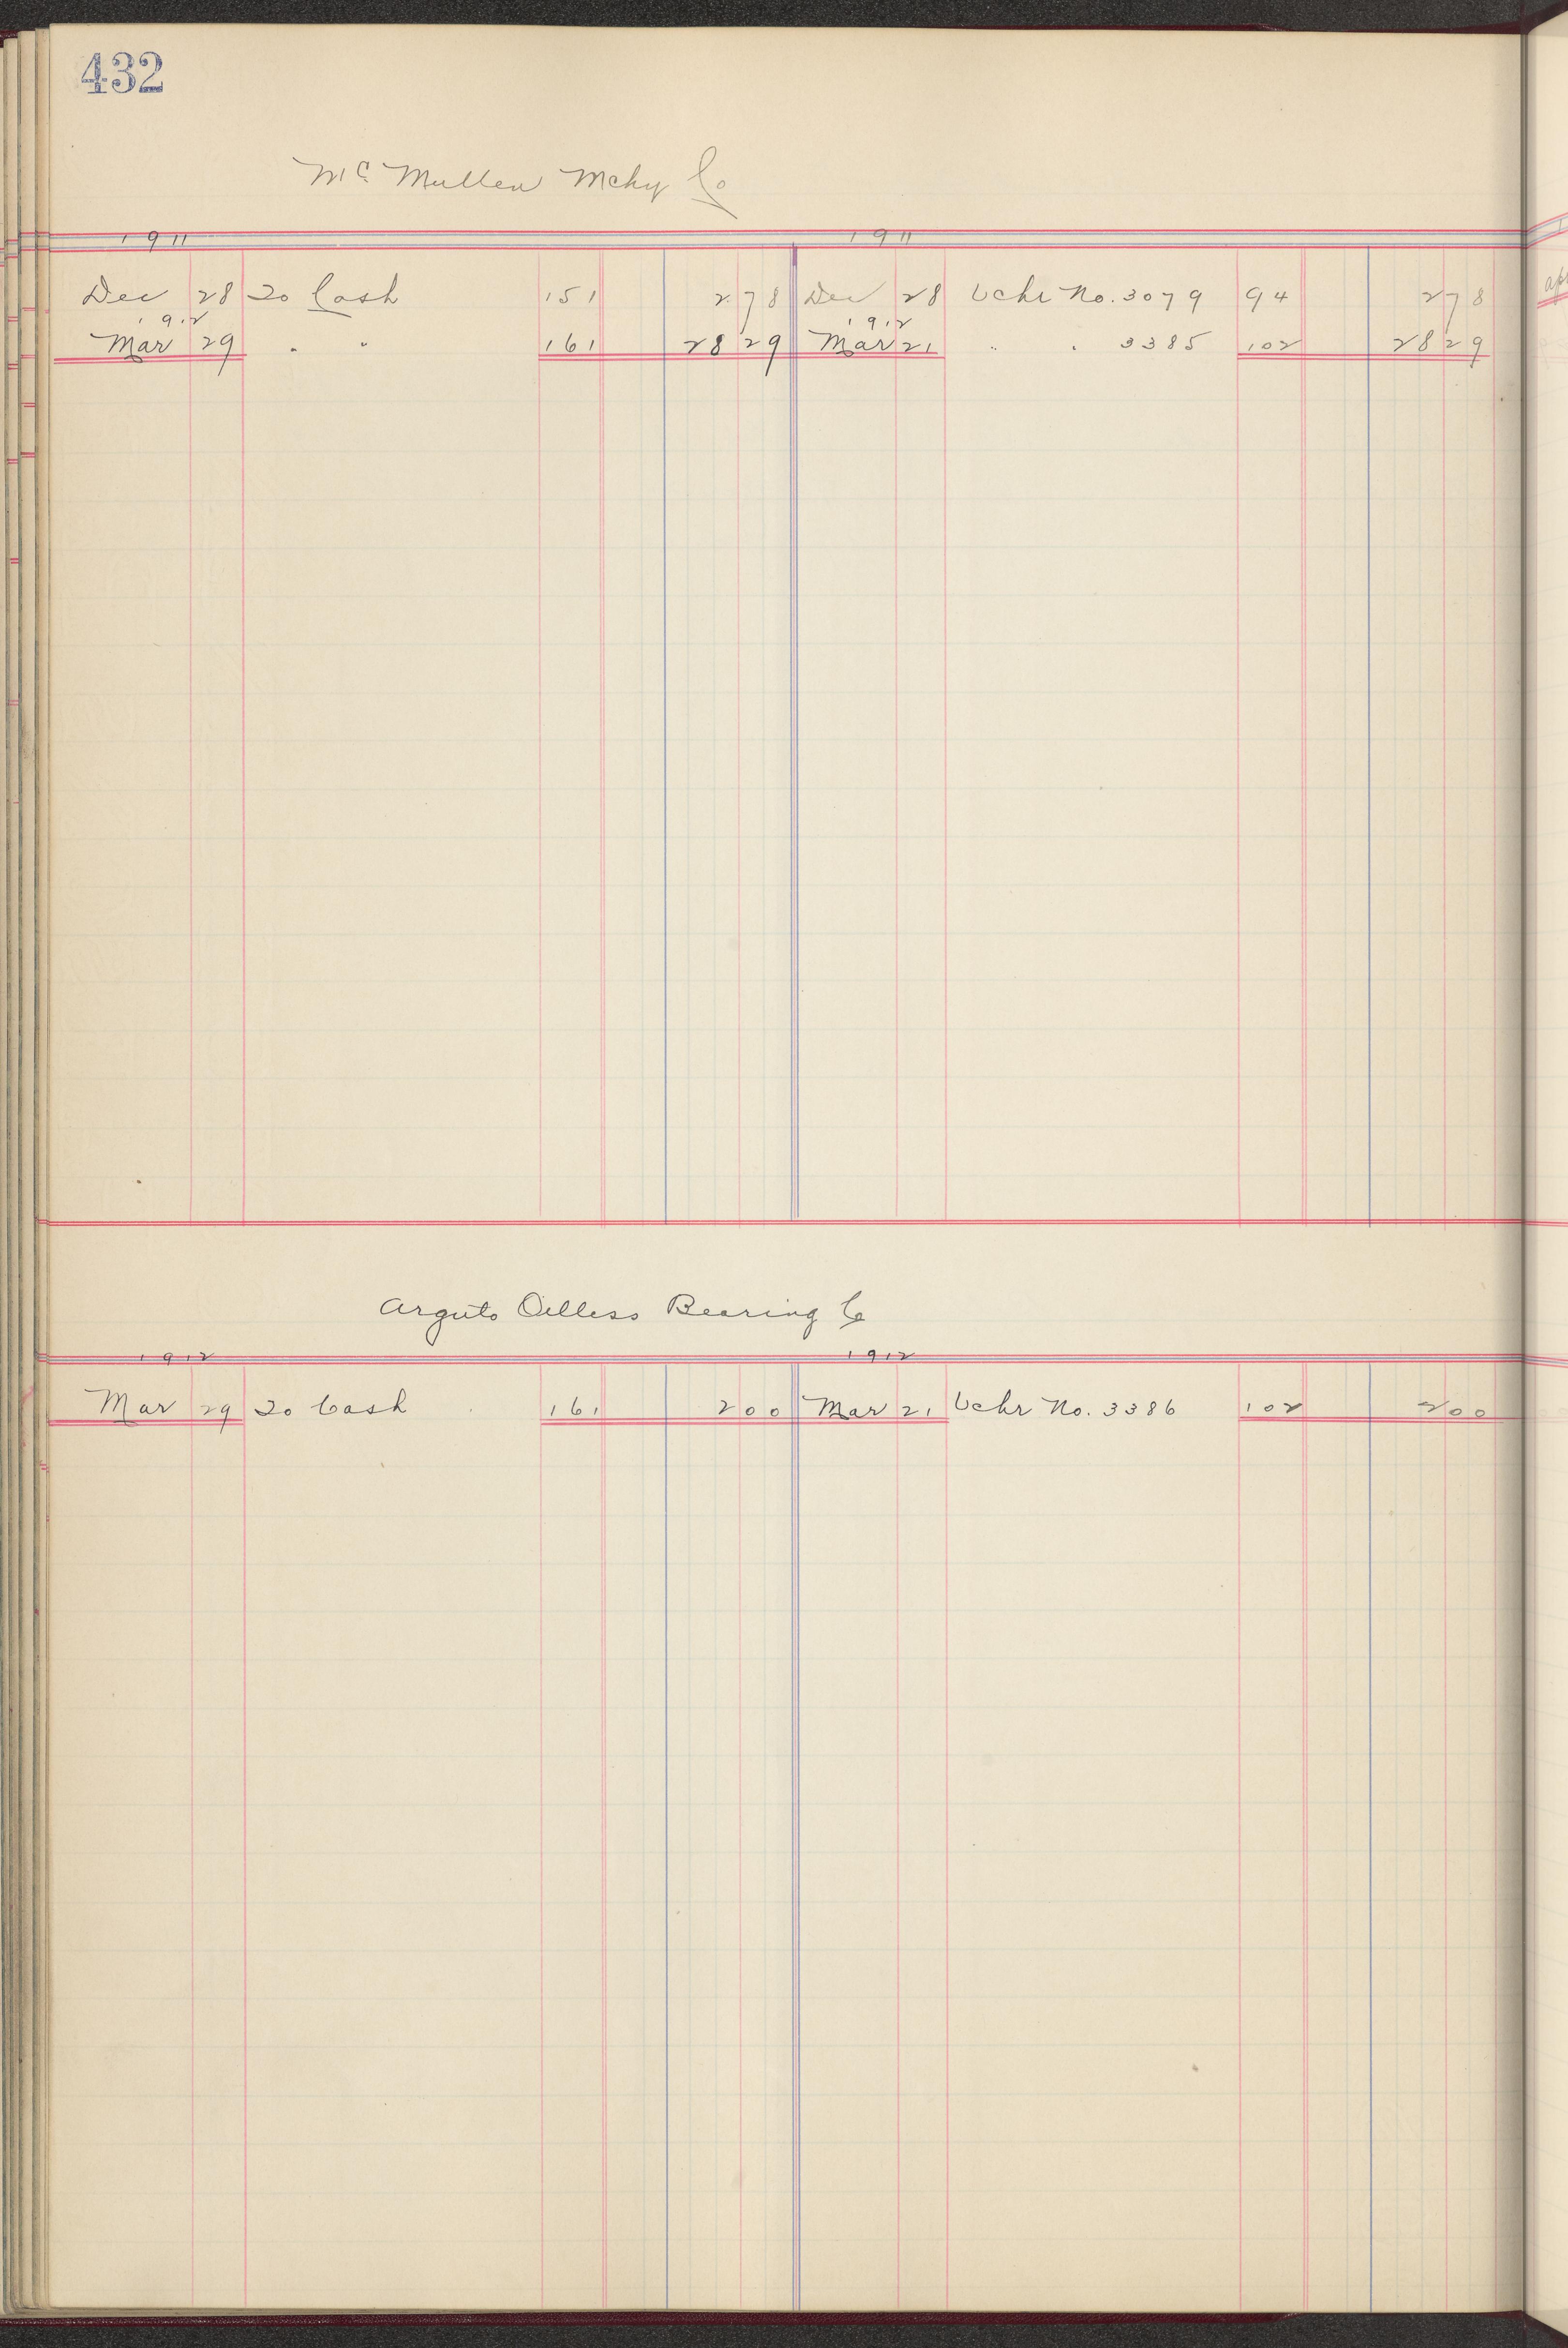 432
Mc Mullen Mchy Co
1911 1911
Dec 28 To Cash 151 2 78 Dec 28 Vchr No. 3079 94 2 78
1912 1912
Mar 29 " " 161 28 29 Mar 21 " " 3385 102 28 29
Arguto Oilless Bearing Co
1912 1912
Mar 29 To Cash 161 2 00 Mar 21 Vchr No. 3386 102 2 00